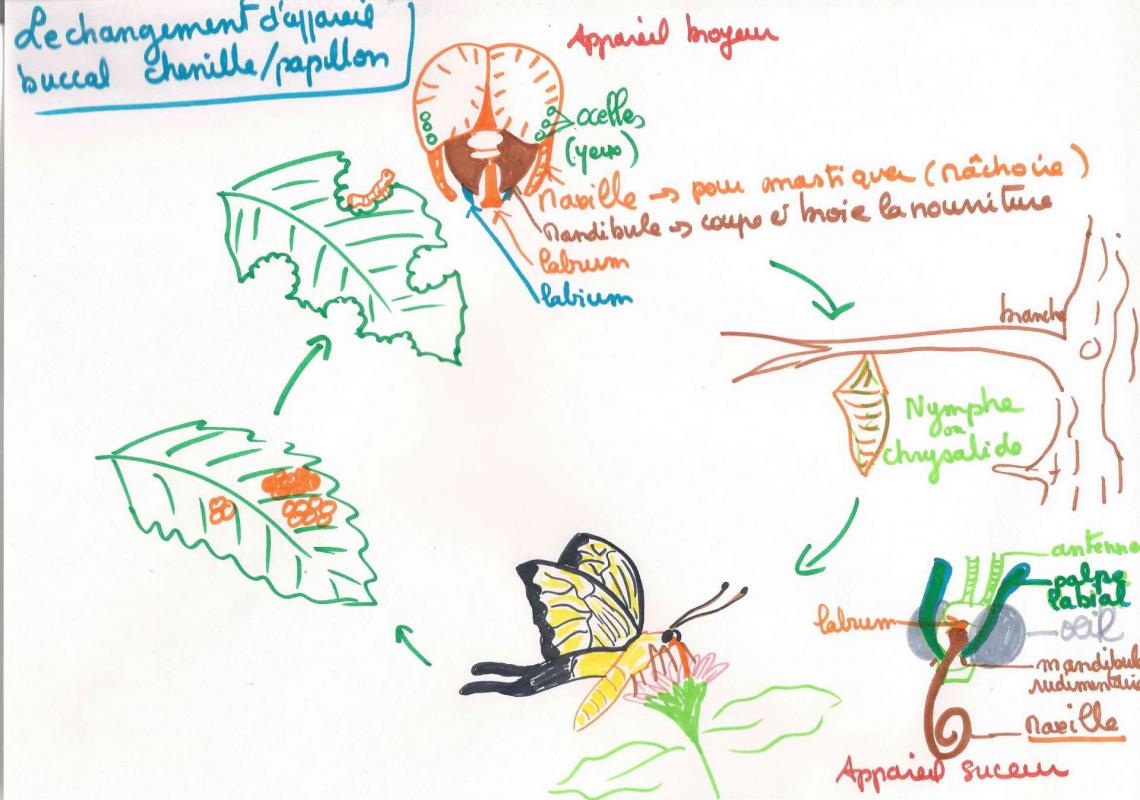 Le changement d'appareil
buccal chenille/papillon
Appareil broyeur
ocelles
(yeux)
Maxille → pour mastiquer (Mâchoire)
Mandibule → coupe et broie la nourriture
labrum
labium
branche
Nymphe
ou
chrysalide
antenne
palpe
labial
labrum
oeil
mandibul
rudimentai
Maxille
Appareil suceur